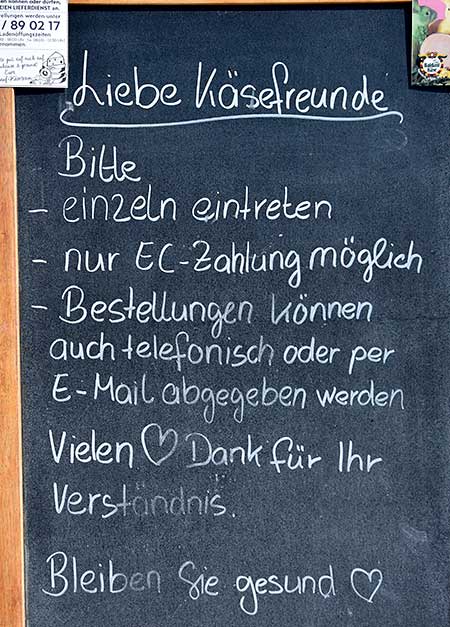 EIEN LIEFERDIENST an.
/ 89 02 17
Ladenöffnungszeiten
Liebe Käsefreunde
Bitte
- einzeln eintreten
- nur EC-Zahlung möglich
- Bestellungen können
auch telefonisch oder per
E-Mail abgegeben werden
Vielen ♡ Dank für Ihr
Verständnis.
Bleiben Sie gesund ♡